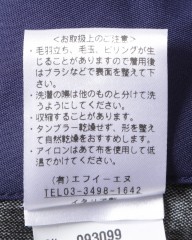 <お取扱上のご注意>
・毛羽立ち、毛玉、ピリングが生
じることがありますので着用後
はブラシなどで表面を整えて下
さい。
・洗濯の際は他のものと分けて洗
うようにして下さい。
・収縮することがあります。
・タンブラー乾燥せず、形を整え
て自然乾燥をおすすめします。
・アイロンはあて布を使用して低
温でかけて下さい。
(有)エフイーエヌ
TEL03-3498-1642
イタリア製
093099